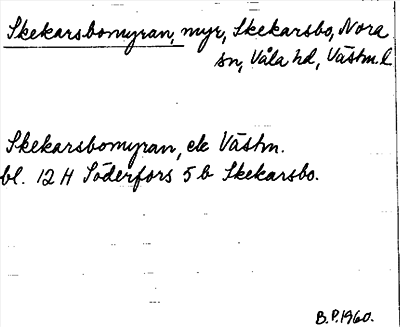 Skekarsbomyran, myr, Skekarsbo, Nora
sn, Våla hd, Västm. l
Skekarsbomyran, ek Västm.
bl. 12 H Söderfors 5 b Skekarsbo.
B.P. 1960.